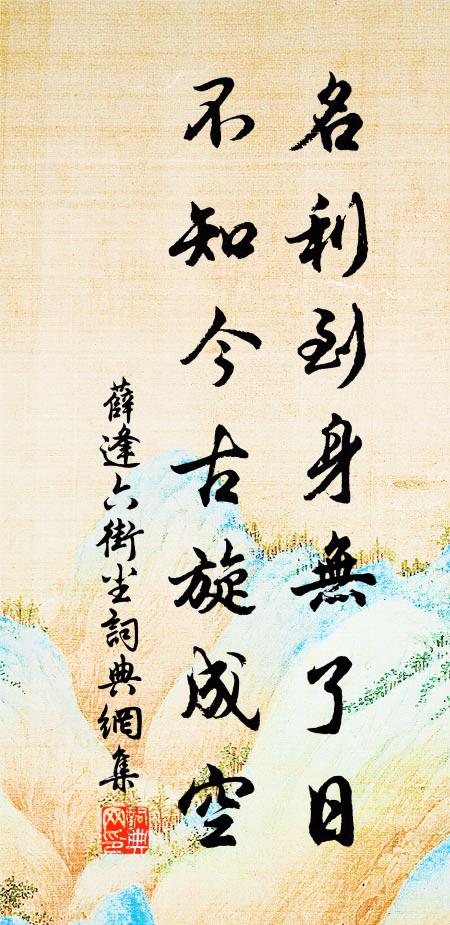 名利到身無了日
不知今古旋成空
薛逢六街尘詞典網集
詞典网印